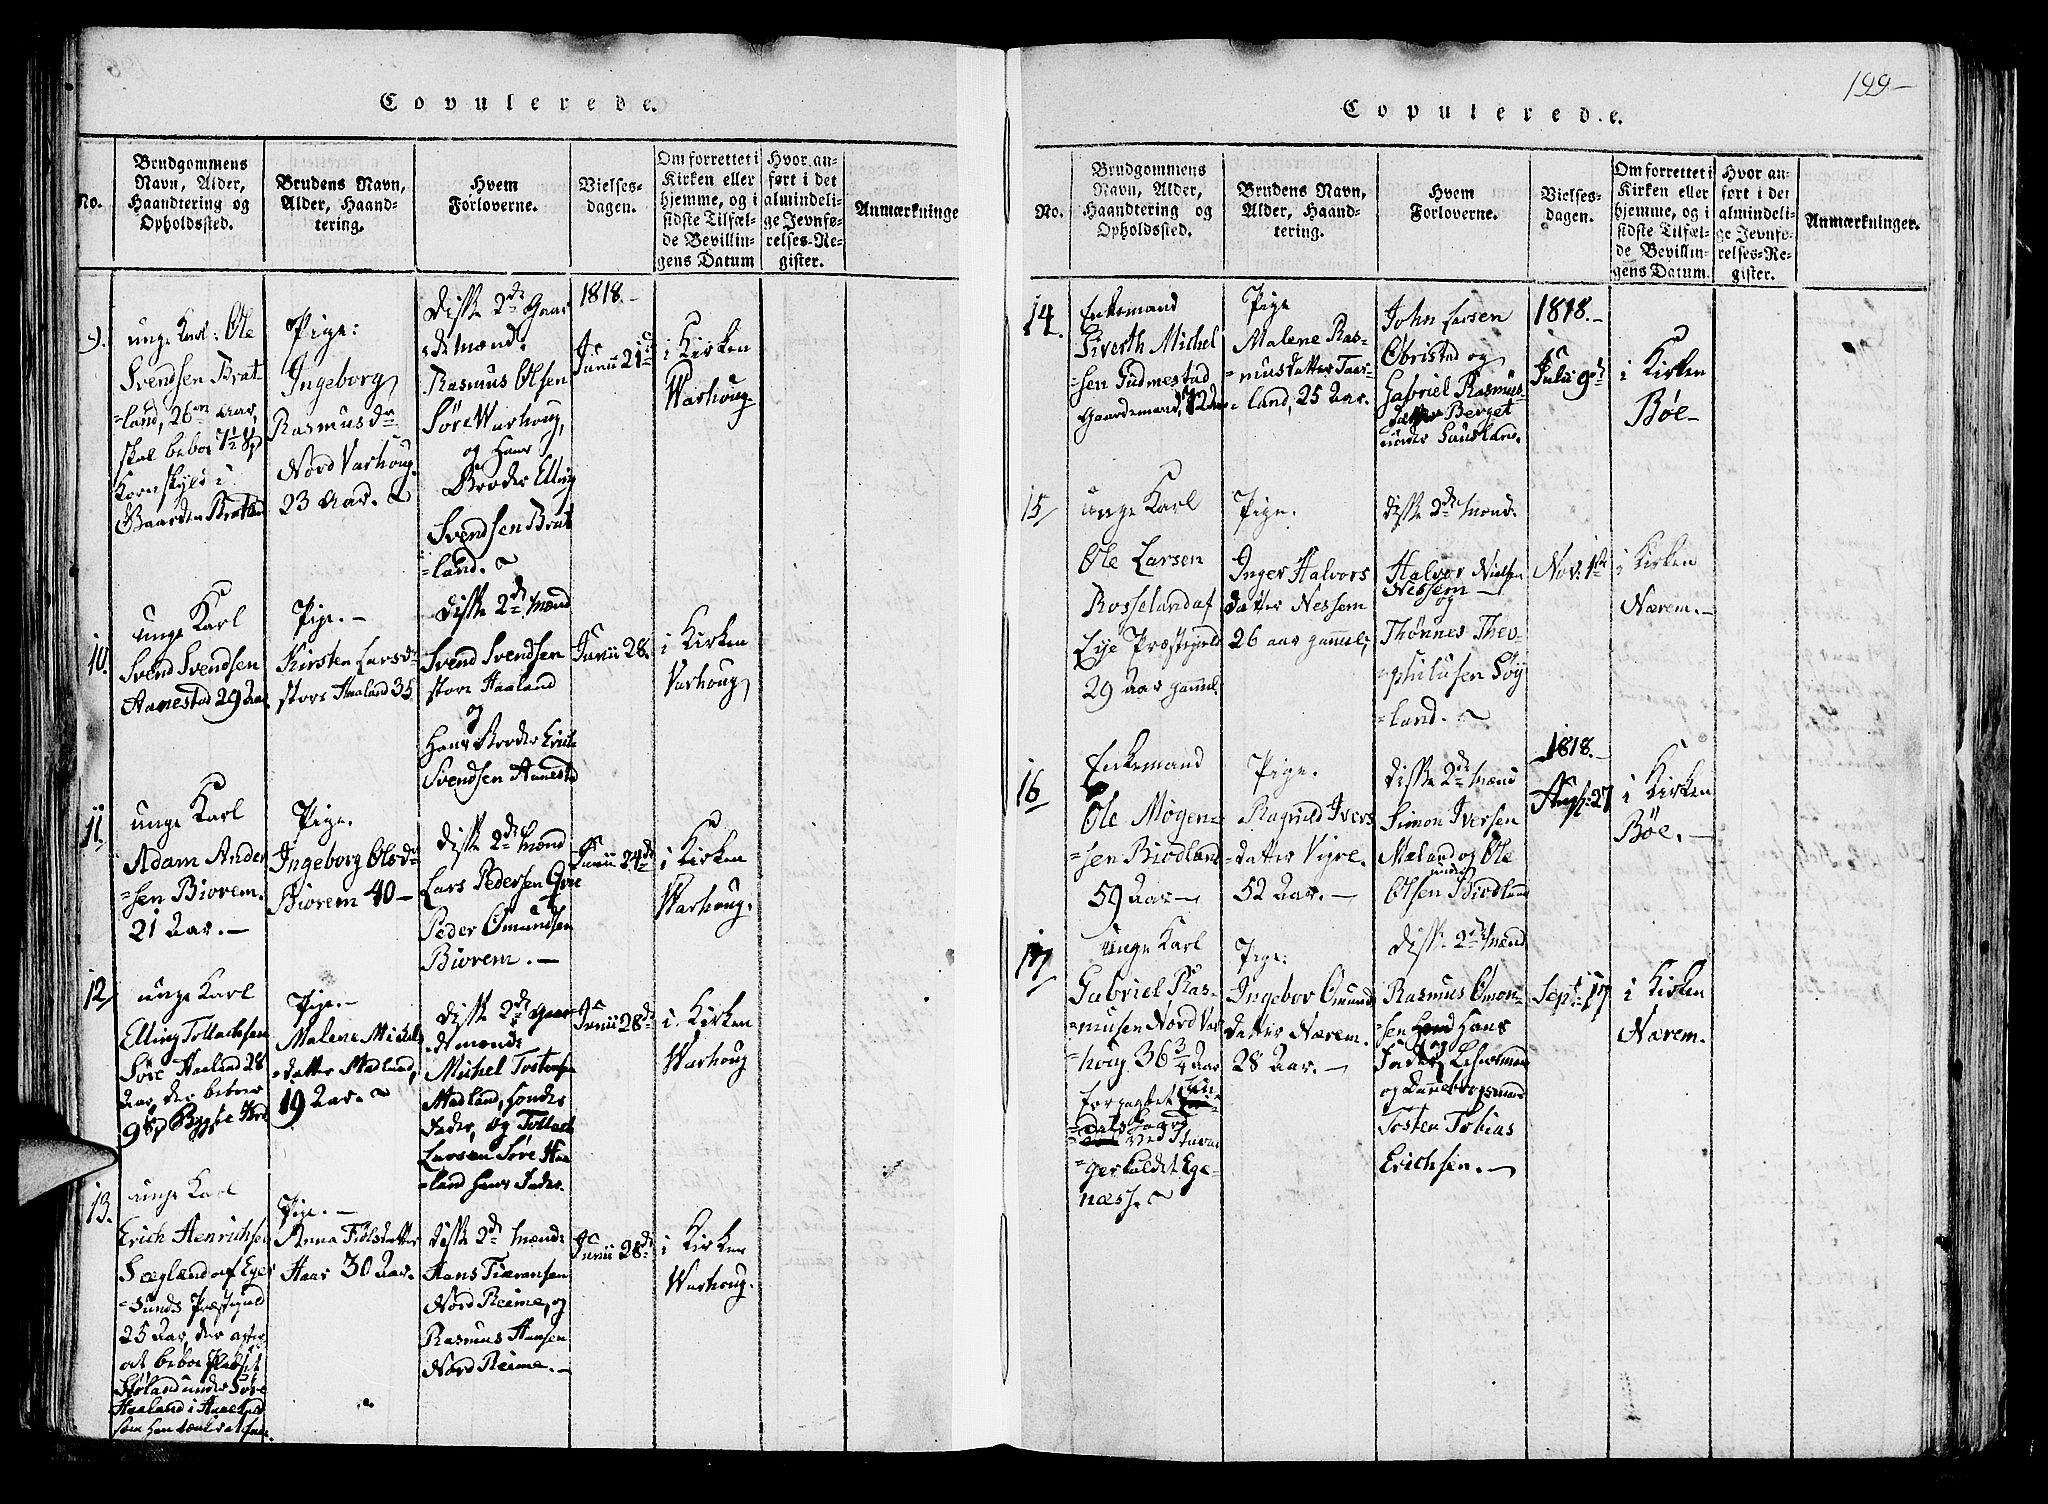 Copulerede.
No.
Brudgommens
Navn, Alder,
Haandtering og
Opholdssted.
Brudens Navn,
Alder, Haand-
tering.
Hvem
Forloverne.
Vielses-
dagen.
Om forrettet i
Kirken eller
hjemme, og i
sidste Tilfæl-
de Bevillin-
gens Datum
Hvor an-
ført i det
almindeli-
ge Jevnfø-
relses-Re-
gister.
Anmærkninger
9.
unge Karl: Ole
Svendsen Brat
=land, 26 Aar,
skal beboe 7½
i
Gaarden Bratland
Pige:
Ingeborg
Rasmusdr
Nord Varhoug.
23 Aar.
Disse 2de Gaar
=demænd.
Rasmus Olsen
Søre Warhoug,
og Hans
Broder Elling
Svendsen Brat
=land.
1818.-
Junii 21de
i Kirken
Warhoug.
10.
unge Karl
Svend Svendsen
Aanestad 29 Aar.
Pige.-
Kirsten Larsdr
store Haaland 35
Disse 2de Mænd
Svend Svendsen
store Haaland
og
Hans Broder Erich
Svendsen Aanestad
Junii 28.
i Kirken
Varhoug
11.
unge Karl
Adam Ander
=sen Biorem.
21 Aar.-
Pige.
Ingeborg Olsdr
Biorem 40-
Disse 2de Mænd
Lars Pedersen
Peder Omundsen
Biorem.-
Junii 24de
i Kirken
Warhoug.
12
unge Karl
Elling Tollachsen
Søre Haaland 28
Aar, der beboer
Pige.-
Malene Michels
=datter Madland,
19 Aar.
Disse 2de Gaar
=demænd:
Michel Tostensen
Madland,
Fader, og Tollach
Larsen Søre Haa
=land Hans Fader.
Junii 28de
i Kirken
Warhoug
13.
unge Karl
Erich Henrichsen
Sægland af Eger
=sunds Præstegield
25 Aar, der agter
at beboe Pladset
Støland under Søre
Haaland i
Pige.-
Anna
Haar 30 Aar.
Disse 2de Mænd:
Hans
Nord Reime, og
Rasmus Hansen
Nord Reime.-
Junii 28de
i Kirken
Warhoug.
199-
Copulerede.
No.
Brudgommens
Navn, Alder,
Haandtering og
Opholdssted.
Brudens Navn,
Alder, Haand-
tering.
Hvem
Forloverne.
Vielses-
dagen.
Om forrettet i
Kirken eller
hjemme, og i
sidste Tilfæl-
de Bevillin-
gens Datum.
Hvor an-
ført i det
almindeli-
ge Jevnfø-
relses-Re-
gister.
Anmærkninger.
14.
Enkemand
Siverth Michel
=sen Gudmestad
Gaardemand,
Pige
Malene Ras-
=musdatter
=land, 25 Aar.
John Larsen
Obrestad og
Gabriel Rasmus-
Berget
under
1818.-
Julii 9de
i Kirken
Bøe-
15
unge Karl
Ole Larsen
Rosseland af
Lye Præstegield
29 Aar gammel
Pige.
Inger Halvors
datter Nessem
26 aar gammel,
Disse 2de Mænd.
Halvor Nielsen
Nessem
og
Thønnes Theo-
=philusen Søy
=land.
Nov: 1ste
i Kirken
Nærem.-
16
Enkemand
Ole Mogen-
=sen Biodland
59 Aar-
Pige.
Ragnild Ivers
=datter Vigre.
52 Aar.-
Disse 2de Mænd
Simon Iversen
Mæland og Ole
Olsen Biodland
1818.-
Augs: 27
i Kirken
Bøe.-
17
unge Karl
Gabriel Ras-
=musen Nord Var
=houg 36¾ Aar
forpagtet
ved Stavan
=ger kaldet Ege-
næss.
Pige:
Ingebor Omunds
datter Nærem.
28 Aar.-
Disse 2de Mænd
Rasmus Omon-
=sen Hans
og
Fader Lehnsmand
og Dannebrogsmand
Tosten Tobias
Erichsen.-
Sept: 17
i Kirken
Nærem.